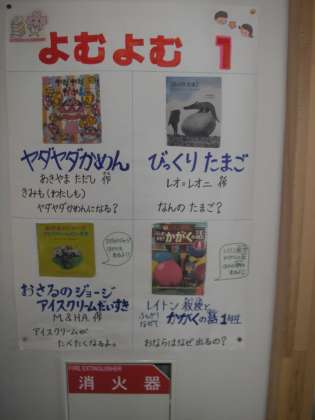 よむよむ 1
ヤダヤダかめん
あきやま ただし 作
きみも(わたしも)
ヤダヤダかめんになる?
びっくりたまご
レオ=レオニ 作
なんの たまご?
おさるのジョージ
アイスクリームだいすき
M.&H.A. 作
アイスクリームが
たべたくなるよ。
かがくの話
レイトン教授と
ふしぎ なぜ?
かがくの話 1年生
おならはなぜ 出るの?
FIRE EXTINGUISHER
消火器